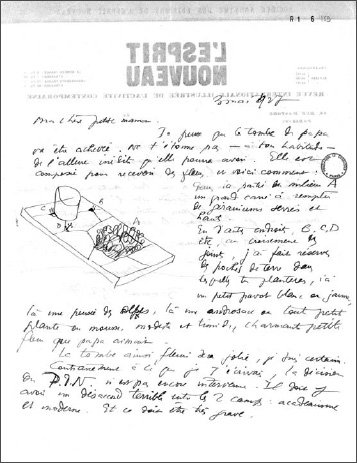 R1 6 115
L'ESPRIT
NOUVEAU
REVUE INTERNATIONALE ILLUSTRÉE DE L'ACTIVITÉ CONTEMPORAINE
3 mai 1927
Ma chère petite maman.
Je pense que la tombe de papa
va être achevée. Ne t'étonne pas – à ton habitude –
de l'allure inédite qu'elle pourra avoir. Elle est
composée pour recevoir des fleurs, et voici comment:
Dans la partie du milieu A
un grand carré à remplir
de géraniums serrés et
hauts
En d'autres endroits, B, C, D
etc, au croisement des
joints, j'ai fait réserver
des poches de terre dans
lesquelles tu planteras, ici
un petit pavot blanc ou jaune,
là une pensée des alpes, là une androsace ou toute petite
plante en mousse, modeste et timide, charmante petite
fleur que papa aimait.
La tombe ainsi fleurie sera jolie, j'en suis certain.
Contrairement à ce que je t'écrivais, la décision
du P.D.N. n'est pas encore intervenue. Il doit y
avoir un désaccord terrible entre les 2 camps: académisme
et moderne. Et ce doit être très grave.
A
B
C
D